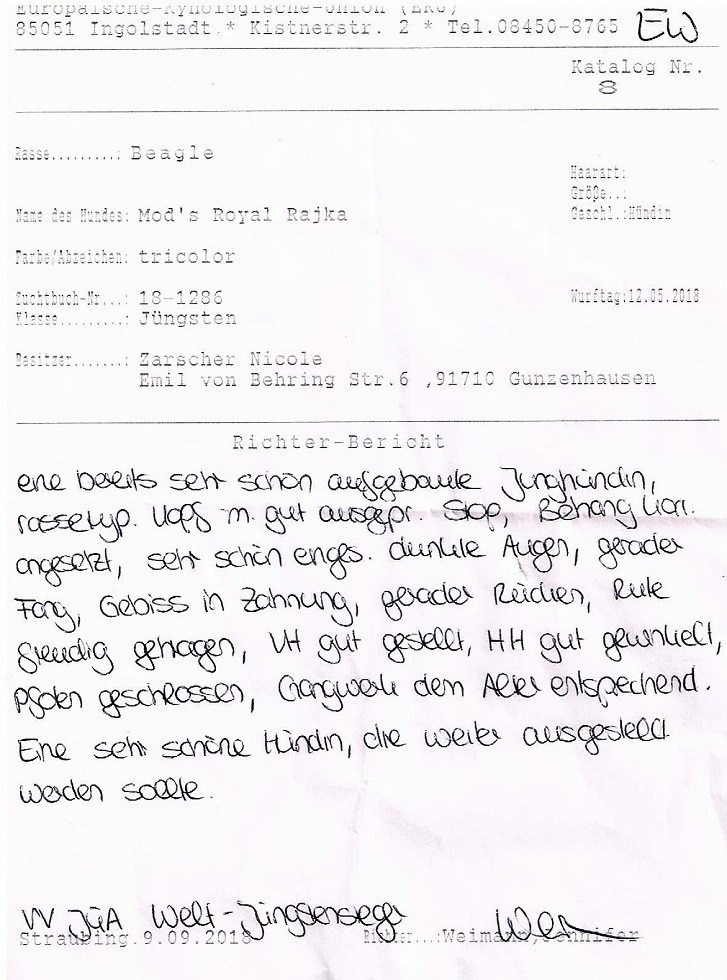 Europäische-Kynologische-Union (EKU)
85051 Ingolstadt * Kistnerstr. 2 * Tel.08450-8765 EW
Katalog Nr.
8
Rasse.........: Beagle
Haarart:
Größe..:
Name des Hundes: Mod's Royal Rajka Geschl.:Hündin
Farbe/Abzeichen: tricolor
Zuchtbuch-Nr...: 18-1286 Wurftag:12.05.2018
Klasse.........: Jüngsten
Besitzer.......: Zarscher Nicole
Emil von Behring Str.6 ,91710 Gunzenhausen
Richter-Bericht
eine bereits sehr schön aufgebaute Junghündin,
rassetyp. Kopf m. gut ausgepr. Stop, Behang korr.
angesetzt, sehr schön einges. dunkle Augen, gerader
Fang, Gebiss in Zahnung, gerader Rücken, Rute
freudig getragen, VH gut gestellt, HH gut gewinkelt,
Pfoten geschlossen, Gangwerk dem Alter entsprechend.
Eine sehr schöne Hündin, die weiter ausgestellt
werden sollte.
VV JüA Welt-Jüngstensieger
Straubing.9.09.2018 Richter...:Weimann,Jennifer